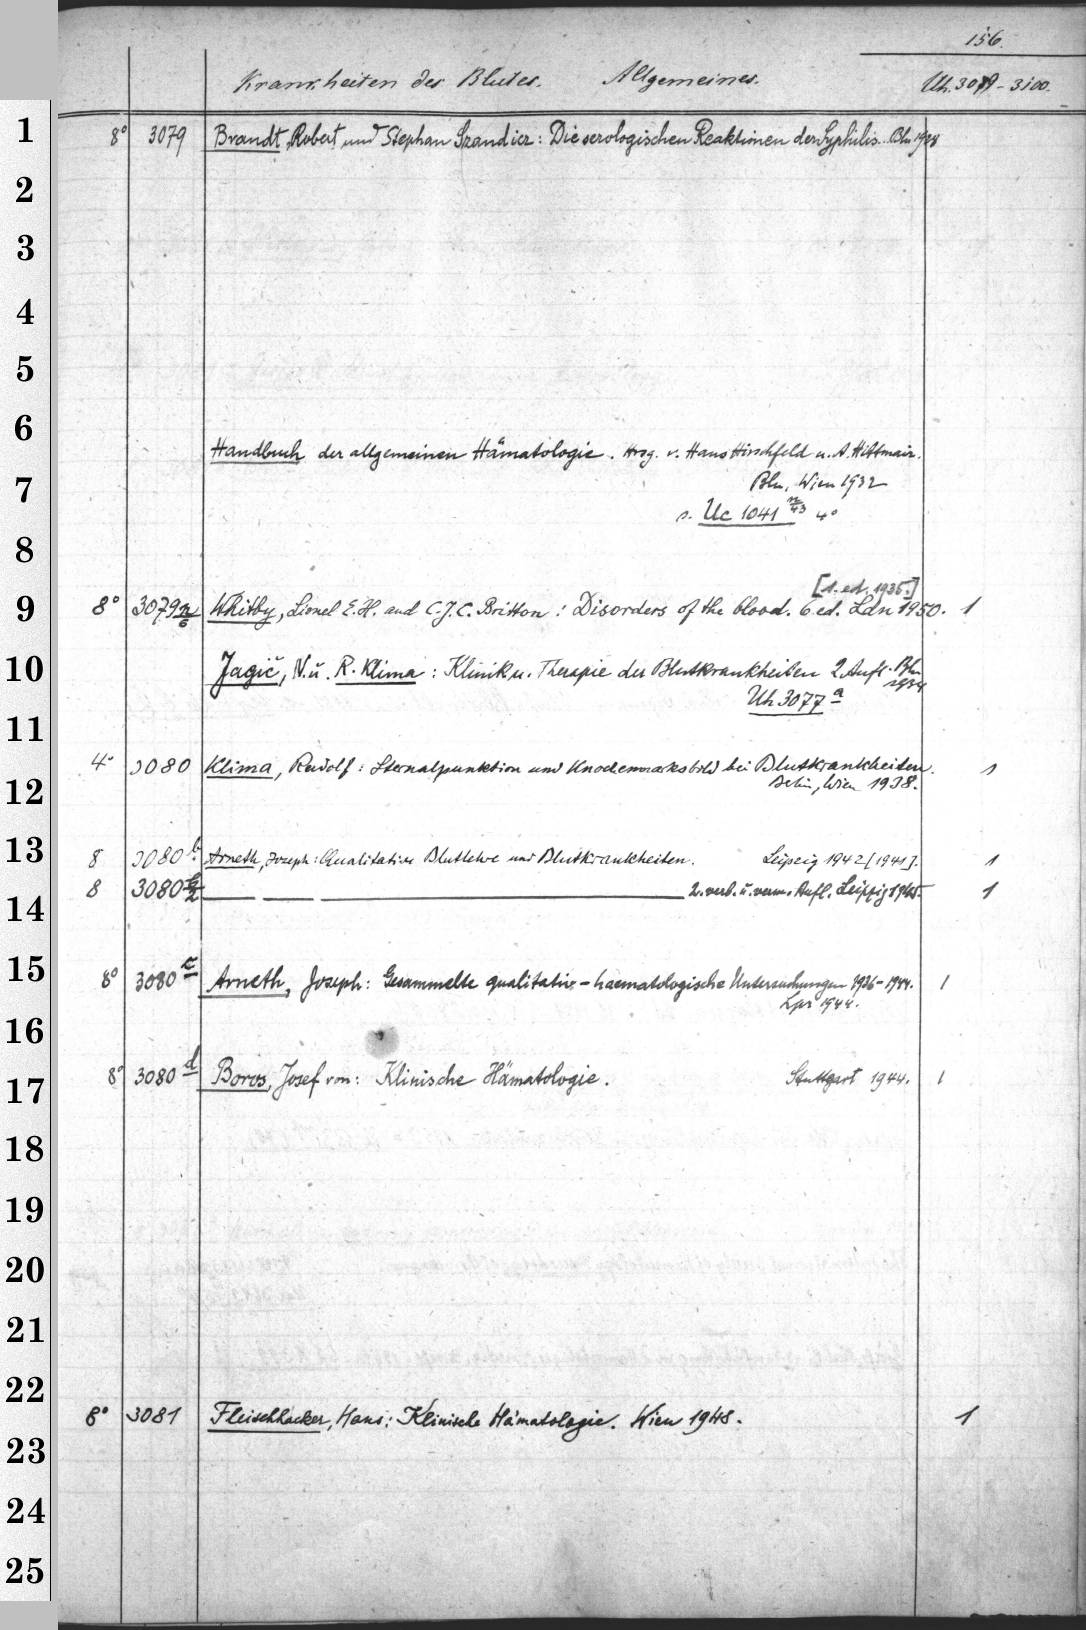 156.
Krankheiten des Blutes. Allgemeines. Uh. 3079 - 3100.
1 8° 3079 Brandt, Robert und Stephan Szandicz: Die serologischen Reaktionen der Syphilis. Bln 1948
2
3
4
5
6
Handbuch der allgemeinen Hämatologie. Hrsg. v. Hans Hirschfeld u. A. Hittmair.
7 Bln, Wien 1932
s. Uc 1041 n/43 4°
8
[1. ed. 1935.]
9 8° 3079 n/6 Whitby, Lionel E. H. and C. J. C. Britton: Disorders of the blood. 6. ed. Ldn 1950. 1
10 Jagič, N. u. R. Klima: Klinik u. Therapie der Blutkrankheiten 2. Aufl. Bln
1934
Uh 3077 a
11
4° 3080 Klima, Rudolf: Sternalpunktion und Knochenmarksbild bei Blutkrankheiten. 1
12 Berlin, Wien 1938.
13 8 3080 b Arneth, Joseph: Qualitative Blutlehre und Blutkrankheiten. Leipzig 1942 [1941]. 1
8 3080 b/2 — — — 2. verb. u. verm. Aufl. Leipzig 1945. 1
14
15 8° 3080 c Arneth, Joseph: Gesammelte qualitativ-haematologische Untersuchungen 1936-1944. 1
Lpz 1944.
16
17 8° 3080 d Boros, Josef von: Klinische Hämatologie. Stuttgart 1944. 1
18
19
20
21
22
8° 3081 Fleischhacker, Hans: Klinische Hämatologie. Wien 1948. 1
23
24
25